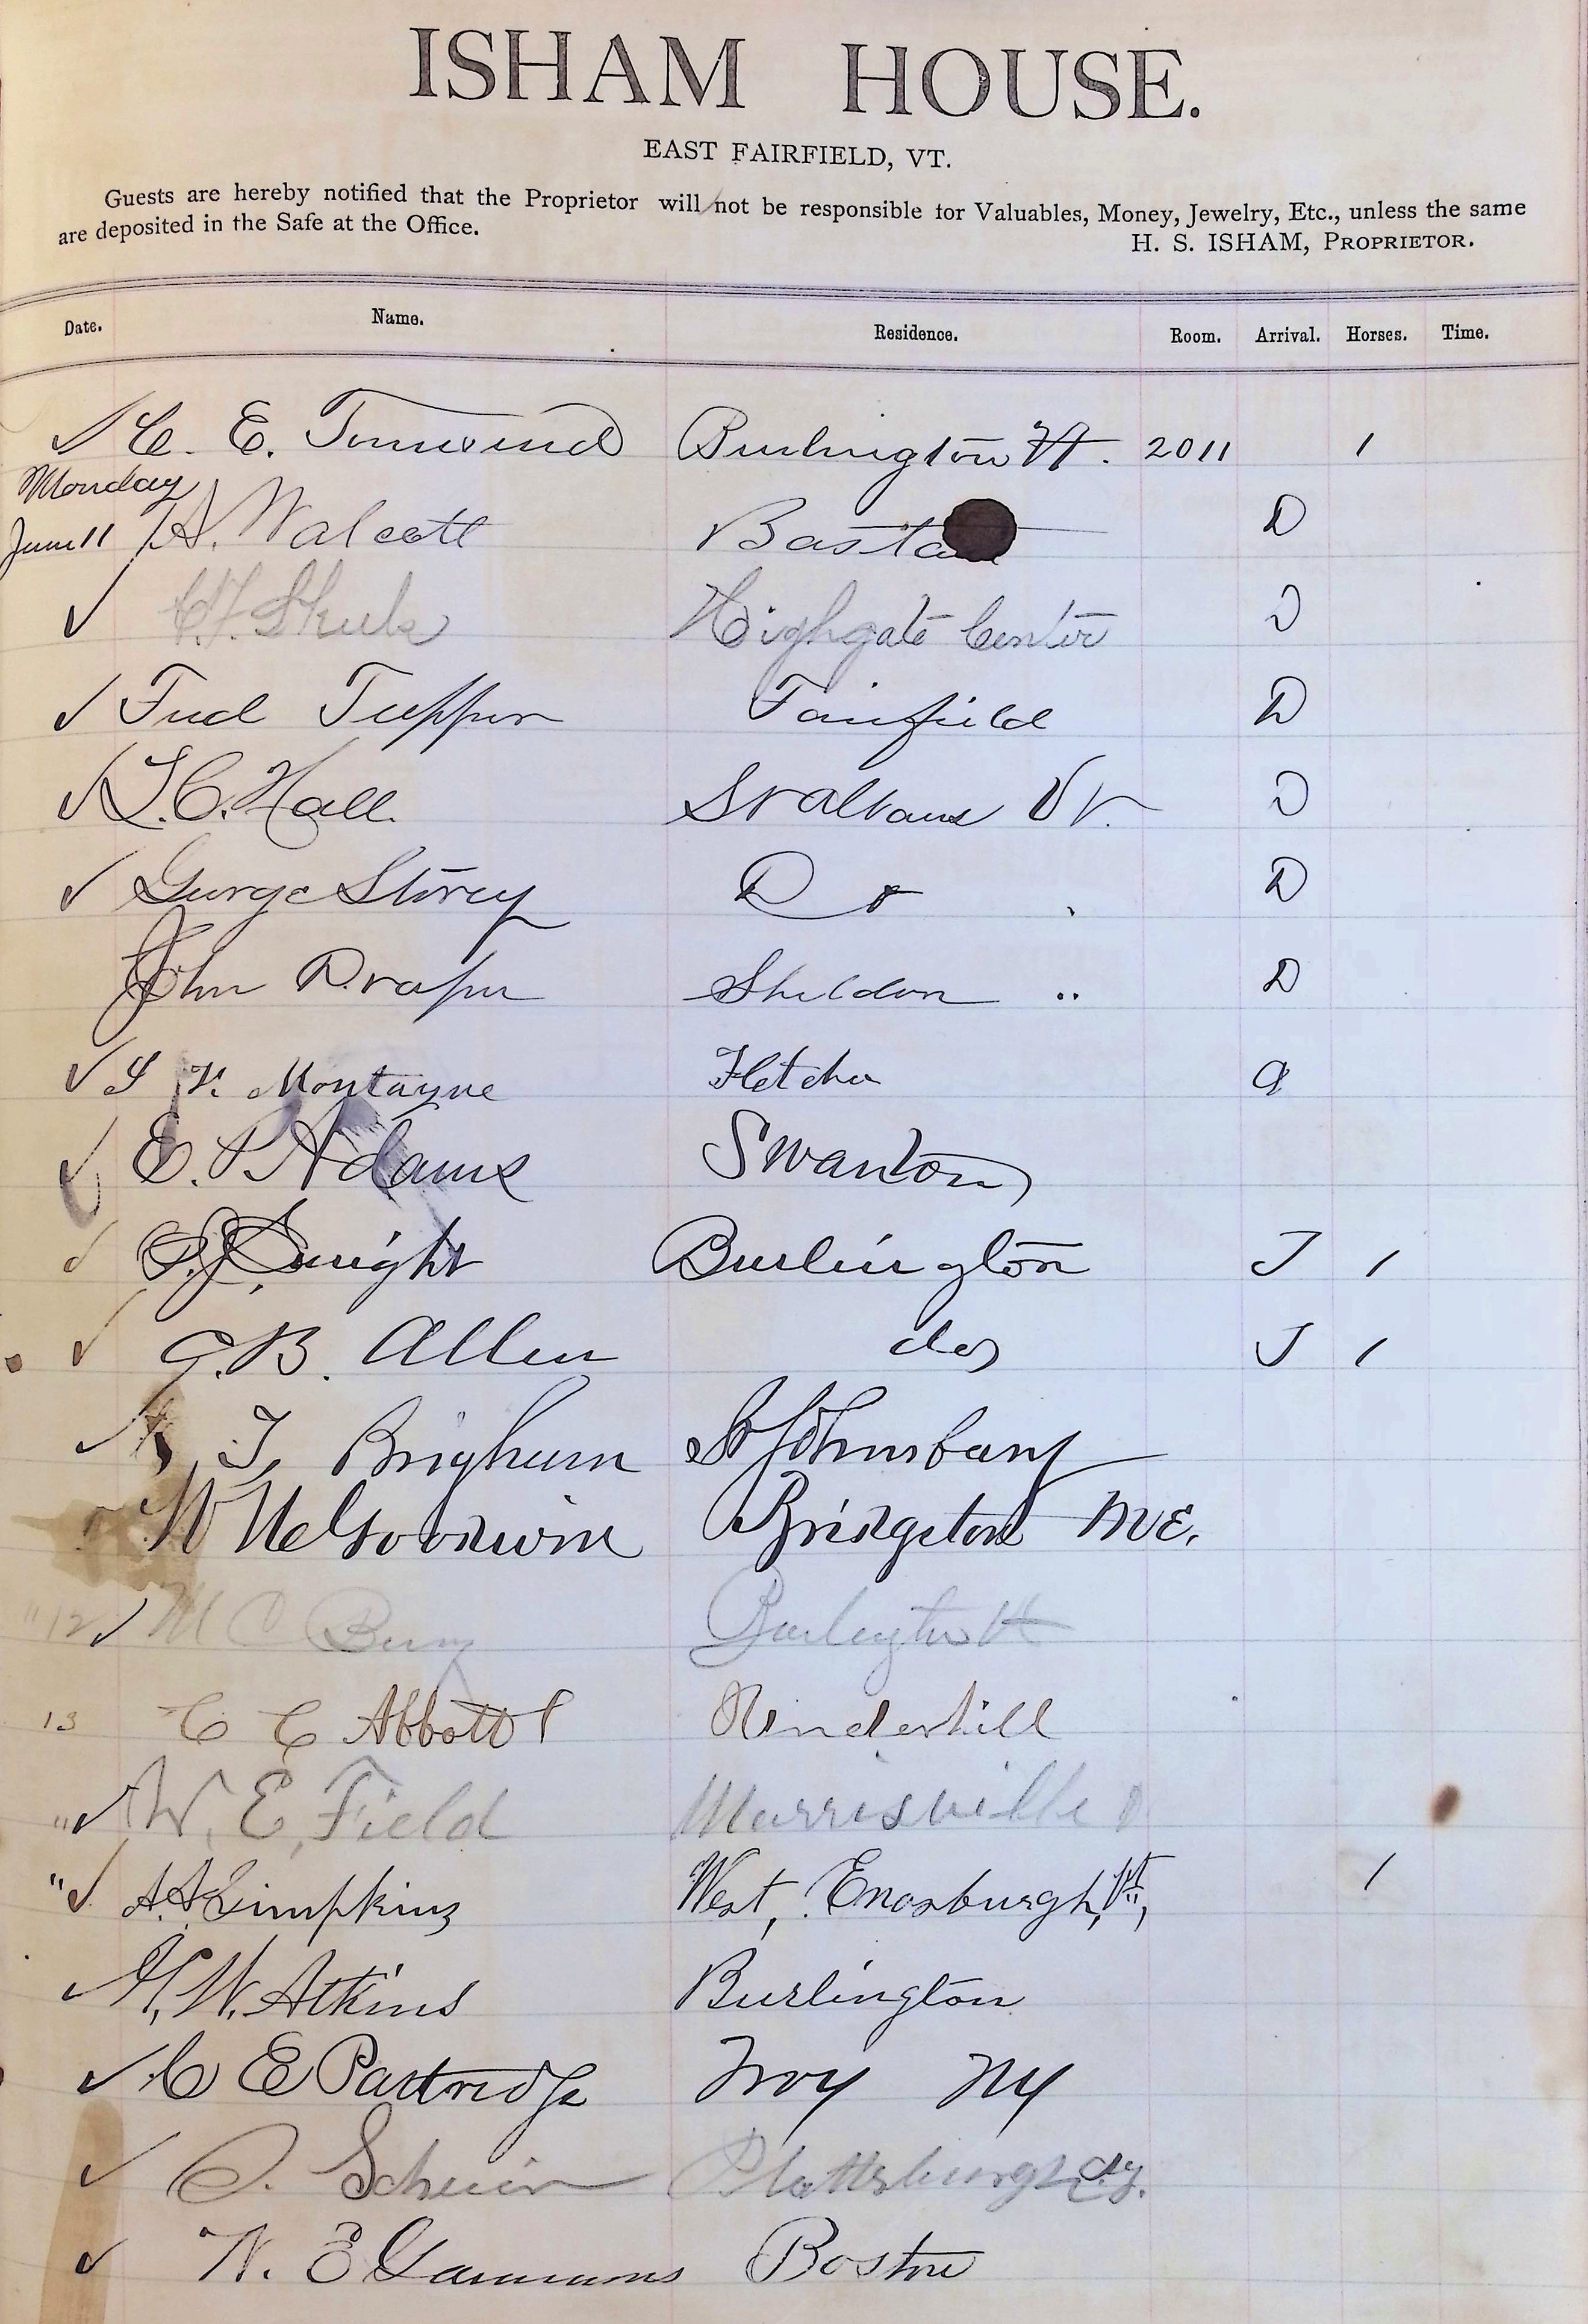 ISHAM HOUSE.
EAST FAIRFIELD, VT.
Guests are hereby notified that the Proprietor will not be responsible for Valuables, Money, Jewelry, Etc., unless the same
are deposited in the Safe at the Office.
H. S. ISHAM, PROPRIETOR.
Date. Name. Residence. Room. Arrival. Horses. Time.
✓ C. E. Townsend Burlington Vt. 2011 1
Monday
June 11 A. Walcott Bosto D
✓ Highgate Center D
✓ Fred Tupper Fairfield D
✓ L.C. Hall. St Albans Vt. D
✓ George Storey Do D
John Draper Sheldon " D
✓ Montayne Fletcher a
✓ E. P. Adams Swanton
✓ Burlington J 1
✓ G.B. Allen do J 1
✓ T. Brigham St Johnsbury
W Goodwin Bridgeton ME.
" 12 ✓ M C Burlington Vt
13 C C Abbott Underhill
" ✓ W. E. Field Morrisville
" ✓ A.A. Simpkins West, Enosburgh, Vt, 1
✓ H. W. Atkins Burlington
✓ C E Partridge Troy NY
✓ Plattsburgh
✓ N. E Gammons Boston